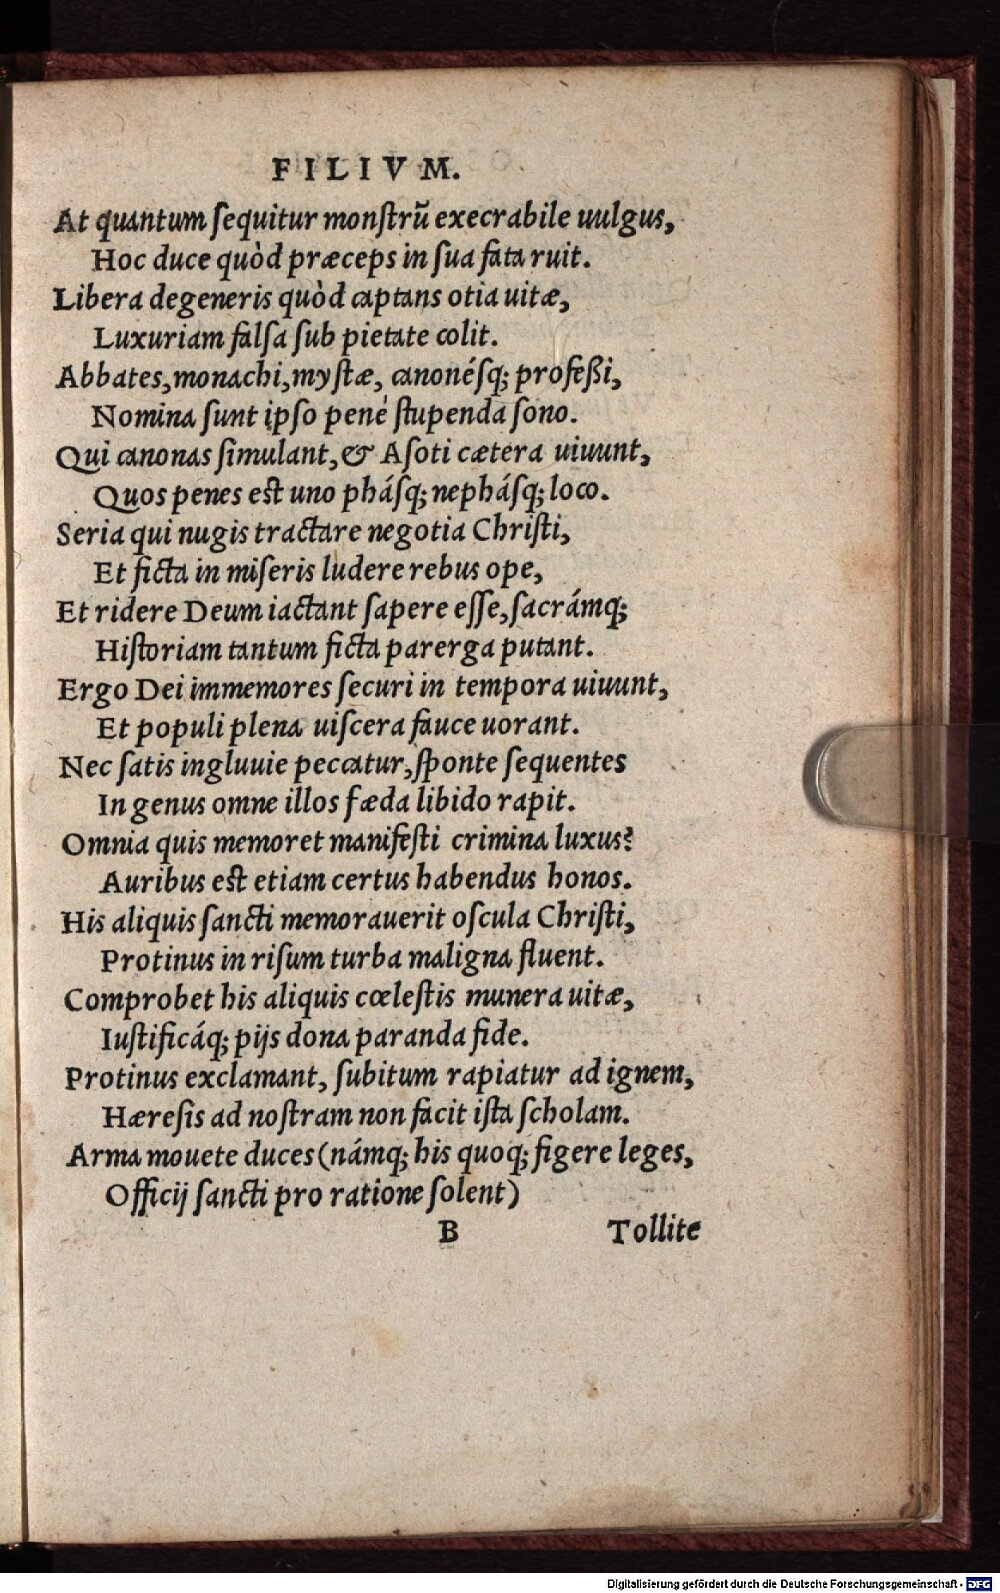 FILIVM.
At quantum ſequitur monſtrũ execrabile uulgus,
Hoc duce quòd præceps in ſua fata ruit.
Libera degeneris quòd captans otia uitæ,
Luxuriam falſa ſub pietate colit.
Abbates, monachi, myſtæ, canonéſq; profeßi,
Nomina sunt ipſo penè ſtupenda ſono.
Qui canonas ſimulant, & Aſoti cætera uiuunt,
Quos penes est uno pháſq; nepháſq; loco.
Seria qui nugis tractare negotia Chriſti,
Et ficta in miſeris ludere rebus ope,
Et ridere Deum iactant ſapere eſſe, ſacrámq;
Hiſtoriam tantum ficta parerga putant.
Ergo Dei immemores ſecuri in tempora uiuunt,
Et populi plena uiſcera fauce uorant.
Nec ſatis ingluuie peccatur, ſponte ſequentes
In genus omne illos fæda libido rapit.
Omnia quis memoret manifeſti crimina luxus?
Auribus est etiam certus habendus honos.
His aliquis ſancti memorauerit oſcula Chriſti,
Protinus in riſum turba maligna fluent.
Comprobet his aliquis cœleſtis munera uitæ,
Iuſtificáq; pijs dona paranda fide.
Protinus exclamant, ſubitum rapiatur ad ignem,
Hæreſis ad noſtram non facit iſta ſcholam.
Arma mouete duces (námq; his quoq; figere leges,
Officij ſancti pro ratione ſolent)
B Tollite
Digitalisierung gefördert durch die Deutsche Forschungsgemeinschaft - DFG